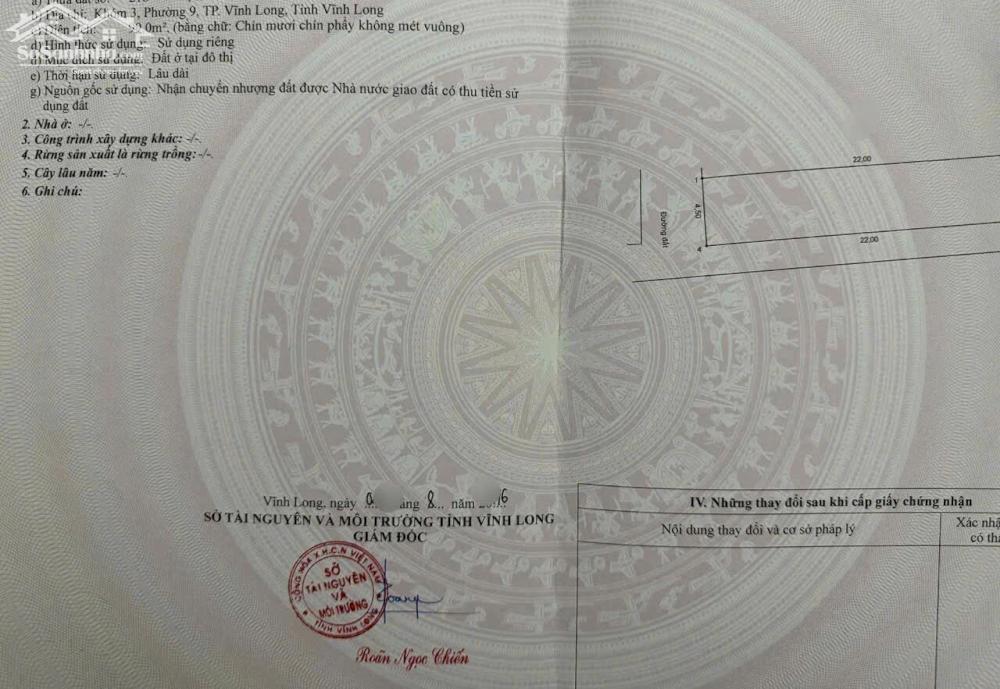 a) Thửa đất số:
b) Địa chỉ: Khóm 3, Phường 9, TP. Vĩnh Long, Tỉnh Vĩnh Long
c) Diện tích: 99.0m², (bằng chữ: Chín mươi chín phẩy không mét vuông)
d) Hình thức sử dụng: Sử dụng riêng
đ) Mục đích sử dụng: Đất ở tại đô thị
e) Thời hạn sử dụng: Lâu dài
g) Nguồn gốc sử dụng: Nhận chuyển nhượng đất được Nhà nước giao đất có thu tiền sử
dụng đất
2. Nhà ở: -/-.
3. Công trình xây dựng khác: -/-.
4. Rừng sản xuất là rừng trồng: -/-.
5. Cây lâu năm: -/-.
6. Ghi chú:
22,00
1
4,50
Đường đất
4
22,00
Vĩnh Long, ngày 0 áng 8 năm 2016
SỞ TÀI NGUYÊN VÀ MÔI TRƯỜNG TỈNH VĨNH LONG
GIÁM ĐỐC
CỘNG HÒA X.H.C.N VIỆT NAM
SỞ
TÀI NGUYÊN
VÀ
MÔI TRƯỜNG
TỈNH VĨNH LONG
Roãn Ngọc Chiến
IV. Những thay đổi sau khi cấp giấy chứng nhận
Nội dung thay đổi và cơ sở pháp lý
Xác nhậ
có thẩ